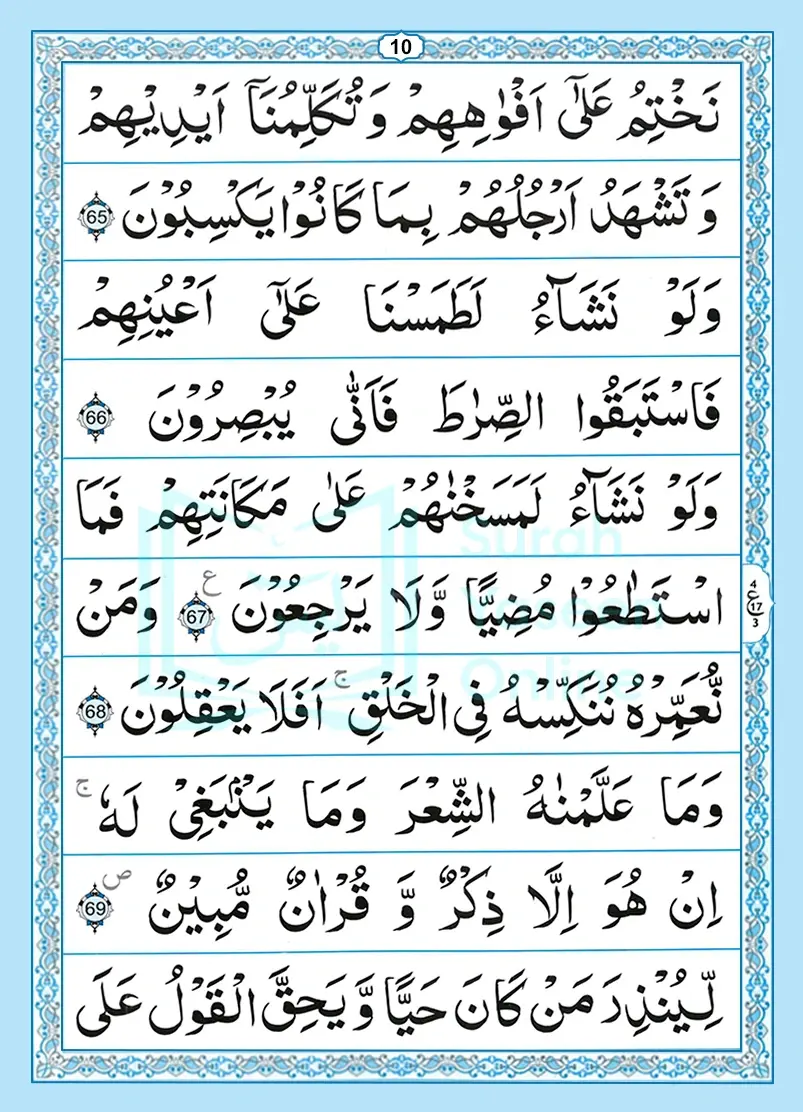 10
نَخْتِمُ عَلٰۤى اَفْوٰهِهِمْ وَ تُكَلِّمُنَاۤ اَيْدِيْهِمْ
وَ تَشْهَدُ اَرْجُلُهُمْ بِمَا كَانُوْا يَكْسِبُوْنَ 65
وَلَوْ نَشَآءُ لَطَمَسْنَا عَلٰۤى اَعْيُنِهِمْ
فَاسْتَبَقُوا الصِّرٰطَ فَاَنّٰى يُبْصِرُوْنَ 66
وَلَوْ نَشَآءُ لَمَسَخْنٰهُمْ عَلٰى مَكَانَتِهِمْ فَمَا
اسْتَطٰعُوْا مُضِيًّا وَّلَا يَرْجِعُوْنَ 67 ع وَمَنْ
4 ع 17 3
نُّعَمِّرْهُ نُنَكِّسْهُ فِى الْخَلْقِ ۚ اَفَلَا يَعْقِلُوْنَ 68
وَمَا عَلَّمْنٰهُ الشِّعْرَ وَمَا يَنْۢبَغِىْ لَهٗ ۚ
اِنْ هُوَ اِلَّا ذِكْرٌ وَّ قُرْاٰنٌ مُّبِيْنٌ 69 ص
لِّيُنْذِرَ مَنْ كَانَ حَيًّا وَّ يَحِقَّ الْقَوْلُ عَلَى
Surah
Yaseen
Online